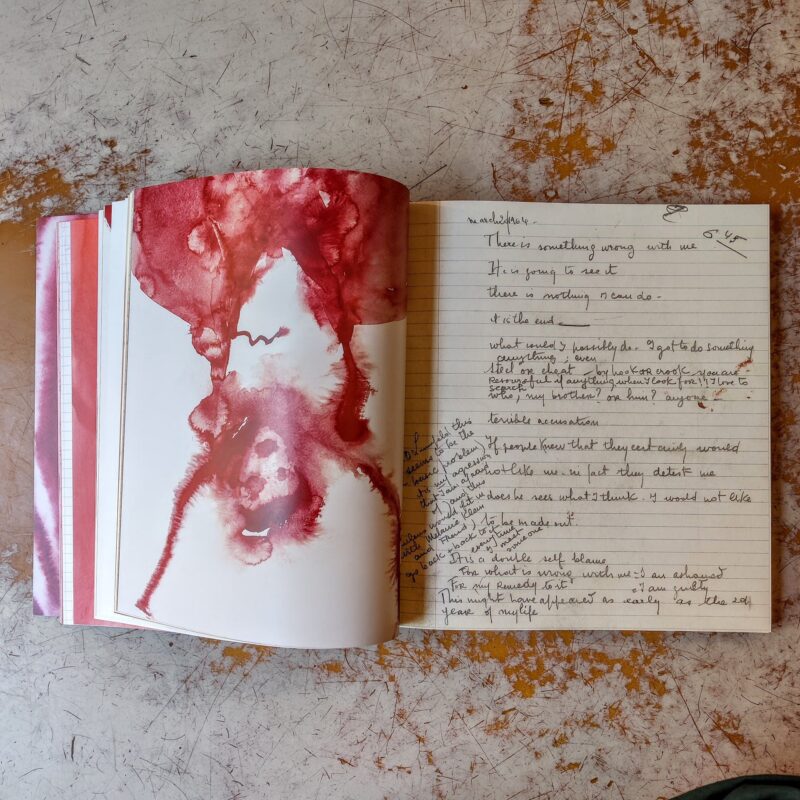 6.45
There is something wrong with me
He is going to see it
there is nothing I can do -
it is the end
what could I possibly do - I got to do something
anything ; even
steel or cheat - by hook or crook you are
Resourceful if anything when I look for!! I love to
search
who, my brother? or him? anyone -
terrible accusation
If people knew that they certainly would
not like me - in fact they detest me
does he sees what I think. I would not like
to be made out.
It is a double self blame
For what is wrong with me - I am ashamed
For my remedy to it - I am guilty
This might have appeared as early as the 2d
year of my life
this
seems to be the
basic problem)
its my agression
that I am afraid
of, and this
would let us
with Melanie Klein
and Freud,
go back + back to it
everything
I meet
someone